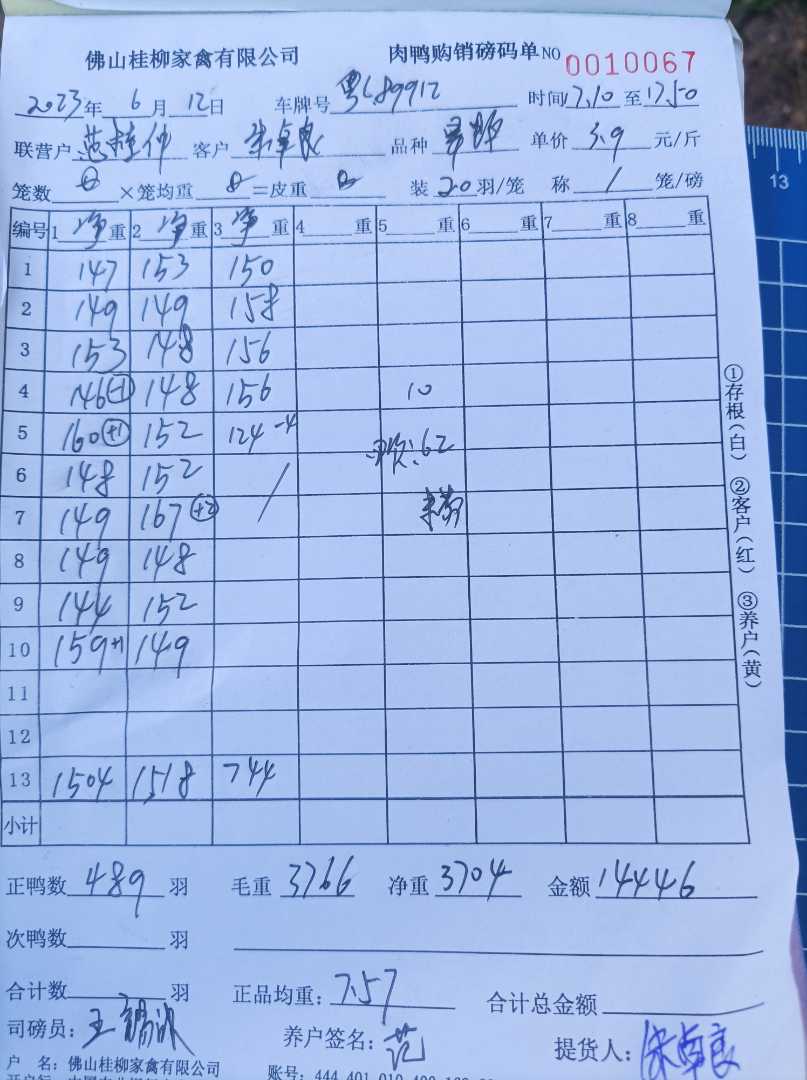 佛山桂柳家禽有限公司 肉鸭购销磅码单 NO 0010067
2023年 6月 12日 车牌号 粤L89912 时间 17.10 至 17.50
联营户 范桂仲 客户 朱卓良 品种 单价 3.9 元/斤
笼数 ×笼均重 =皮重 装 20 羽/笼 称 1 笼/磅
编号 1 净 重 2 净 重 3 净 重 4 重 5 重 6 重 7 重 8 重
1 147 153 150
2 149 149 158
3 153 148 156
4 146 -1 148 156 10
5 160 +1 152 124 -4
6 148 152 62
7 149 167 +2
8 149 148
9 144 152
10 159 +1 149
11
12
13 1504 1518 744
小计
正鸭数 489 羽 毛重 3766 净重 3704 金额 14446
次鸭数 羽
合计数 羽 正品均重: 7.57 合计总金额
司磅员: 王 养户签名: 范 提货人: 朱卓良
户 名: 佛山桂柳家禽有限公司 账号: 444 401 010 400
①存根(白) ②客户(红) ③养户(黄)
13